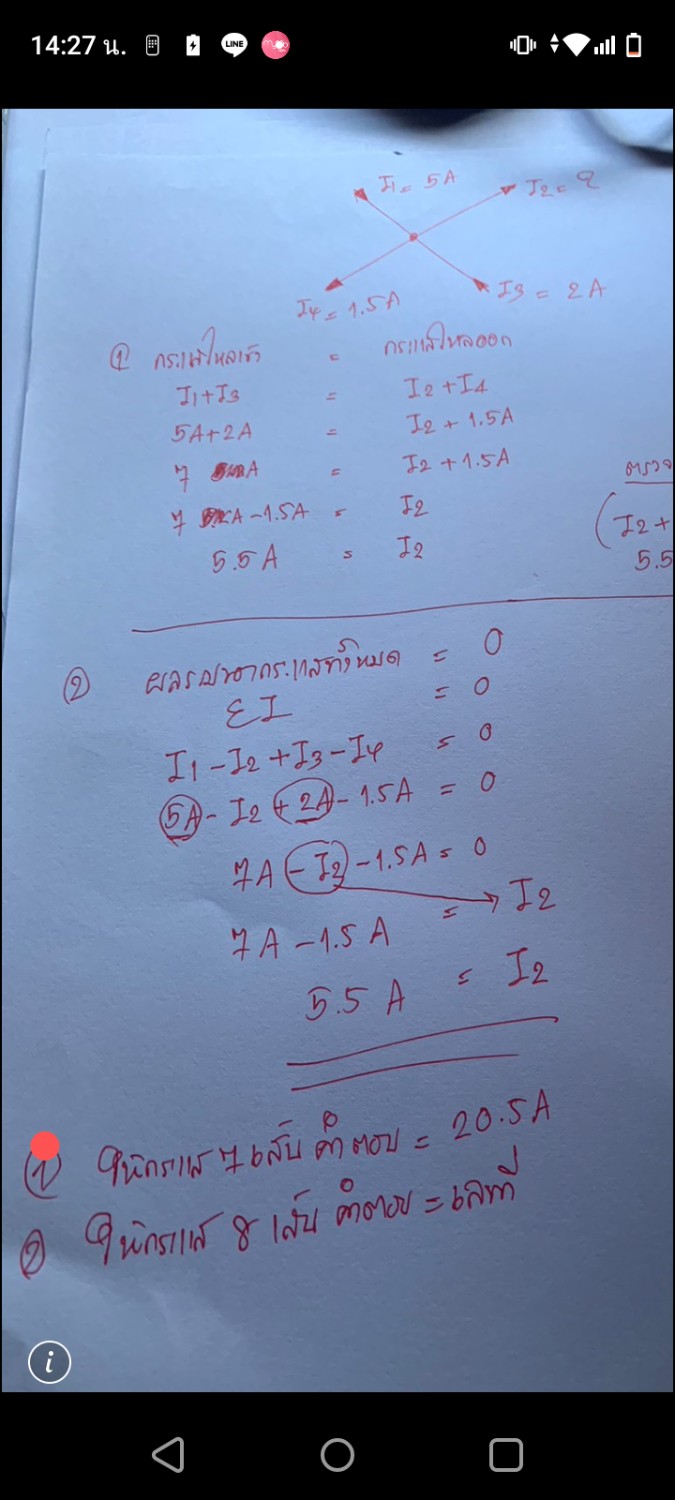 14:27 น.
LINE
I1 = 5A
I2 = ?
I4 = 1.5A
I3 = 2A
① กระแสไหลเข้า = กระแสไหลออก
I1+I3 = I2+I4
5A+2A = I2+1.5A
7 A = I2+1.5A
7 A-1.5A = I2
5.5A = I2
ตรวจ
(I2+
5.5
② ผลรวมกระแสทั้งหมด = 0
ΣI = 0
I1-I2+I3-I4 = 0
5A-I2+2A-1.5A = 0
7A-I2-1.5A = 0
7A-1.5A = I2
5.5A = I2
① ให้กระแส 7 เส้น คำตอบ = 20.5A
② ให้กระแส 8 เส้น คำตอบ = เลขที่
i